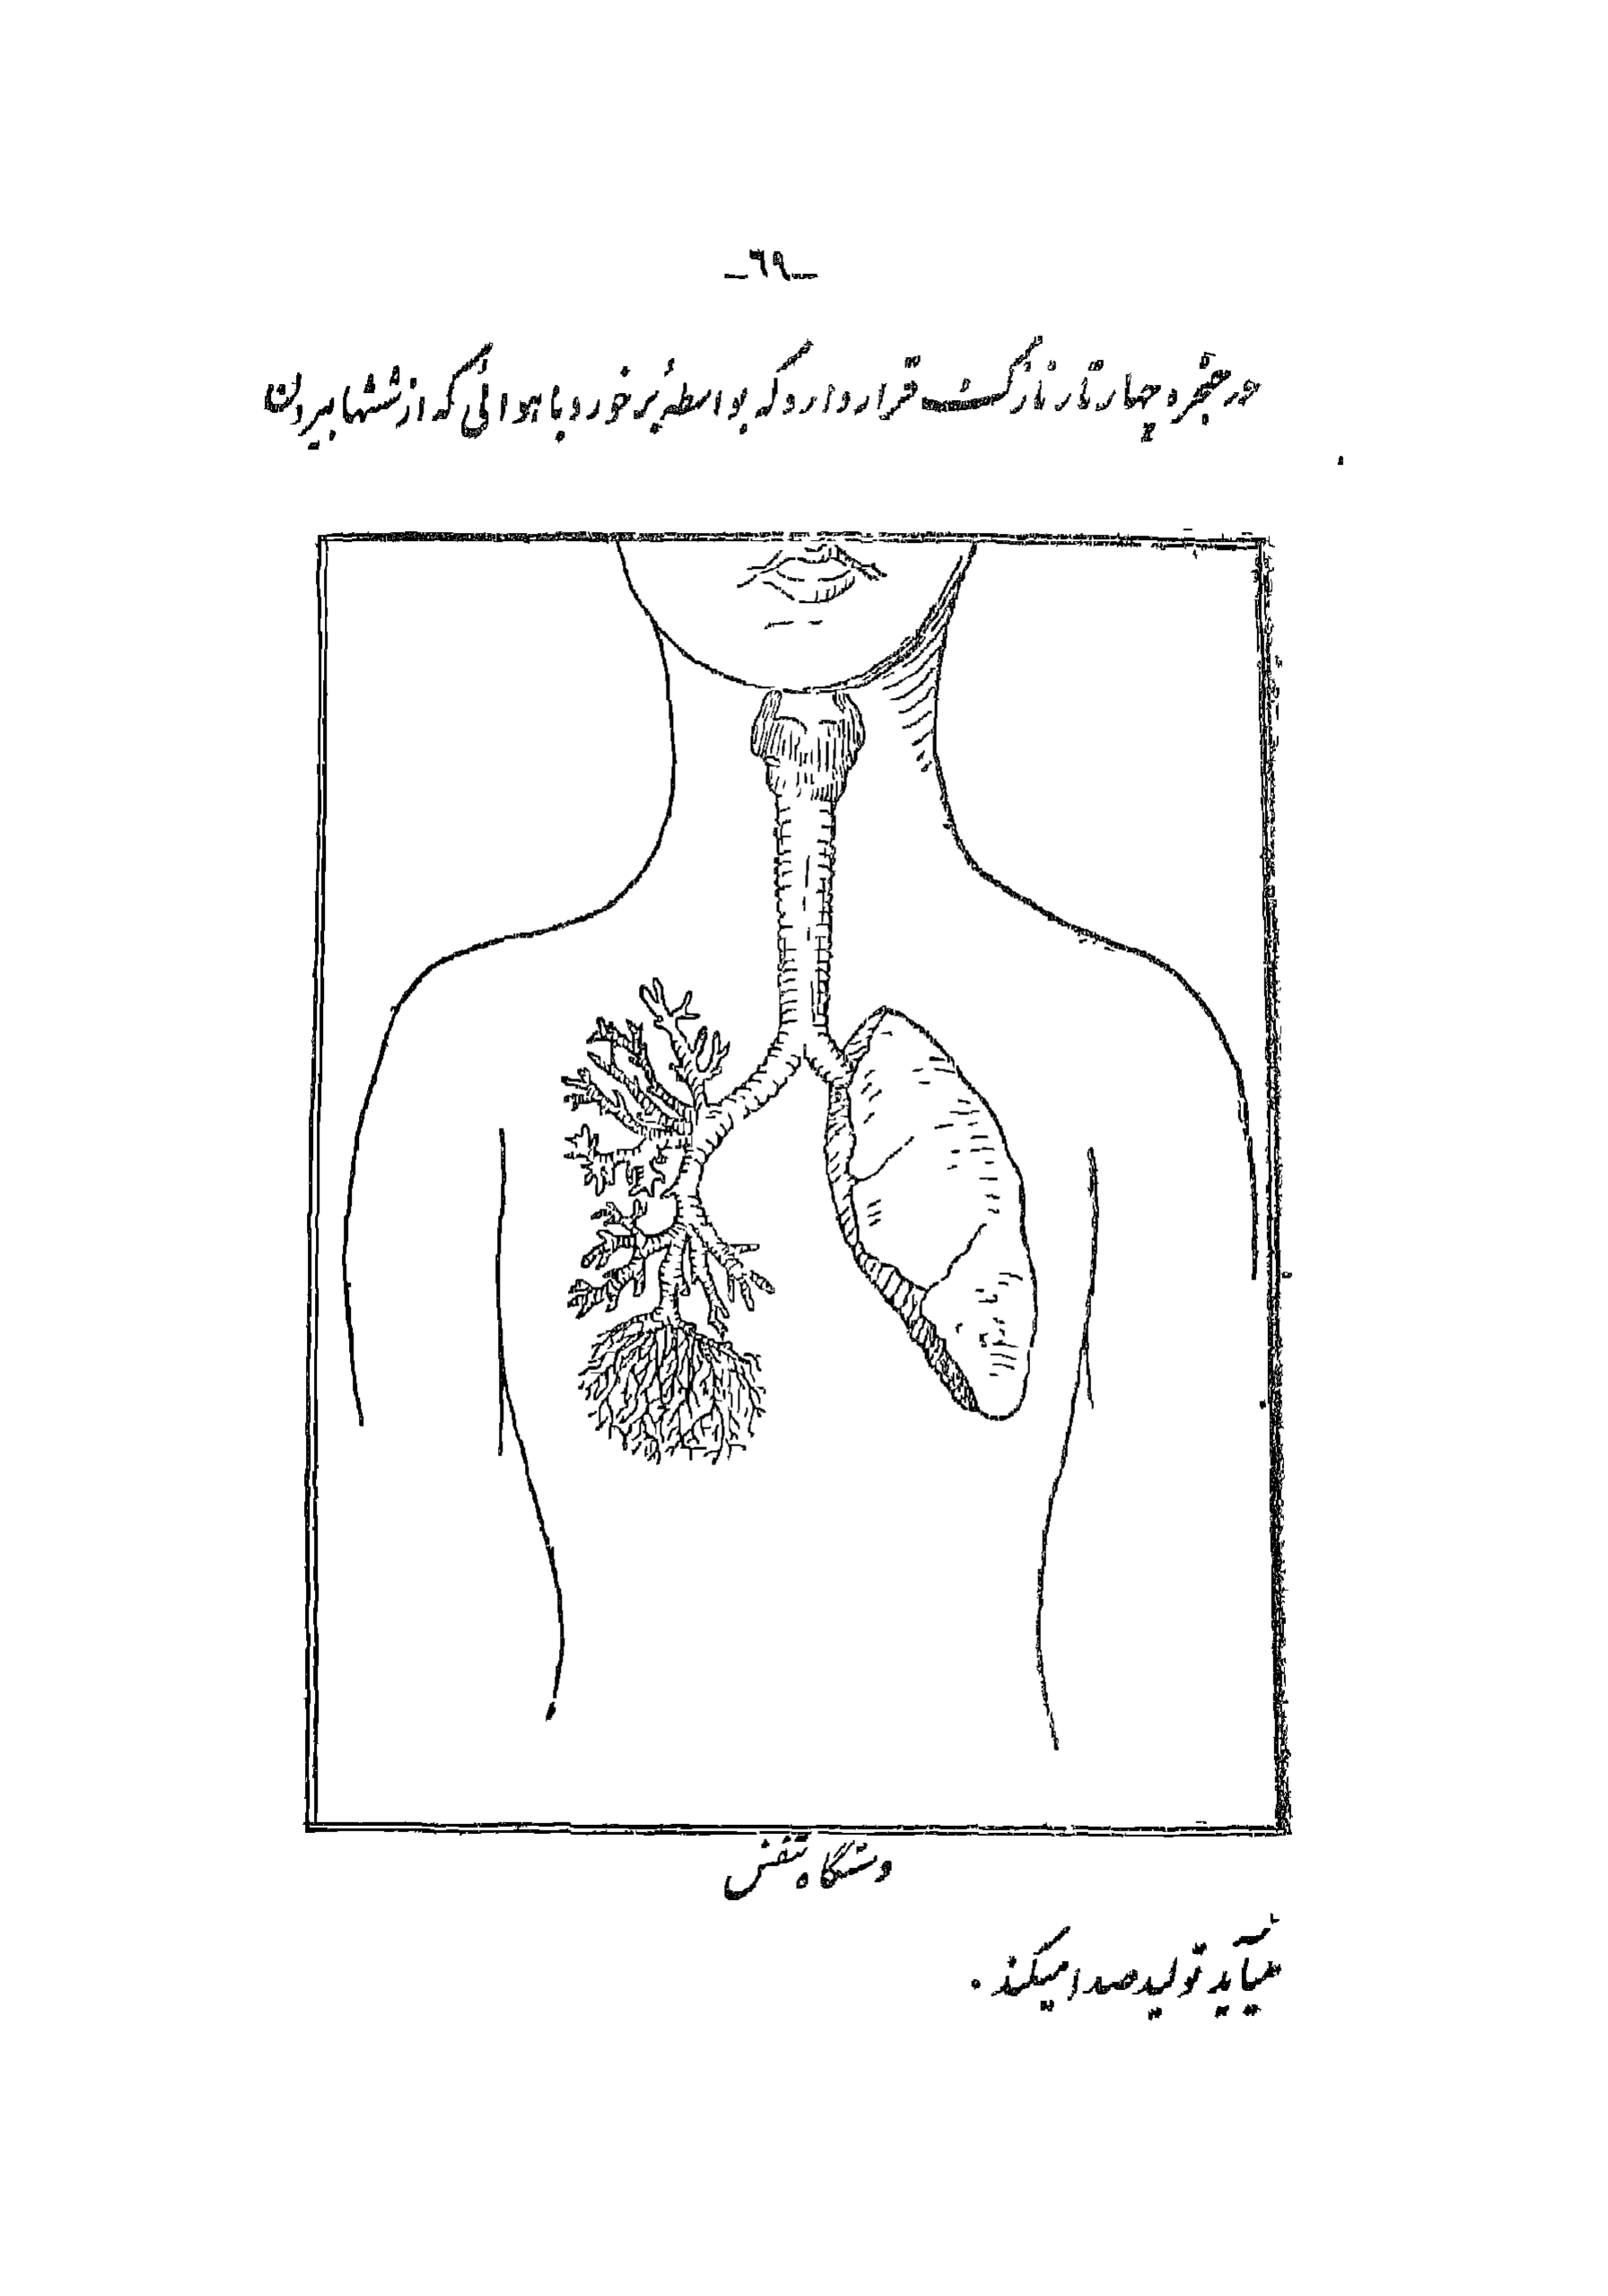 ـ٦٩ـ
در حنجره چهار تار نازک قرار دارد که بواسطهٔ برخورد با هوائی که از ششها بیرون
دستگاه تنفس
میآید تولید صدا میکند .